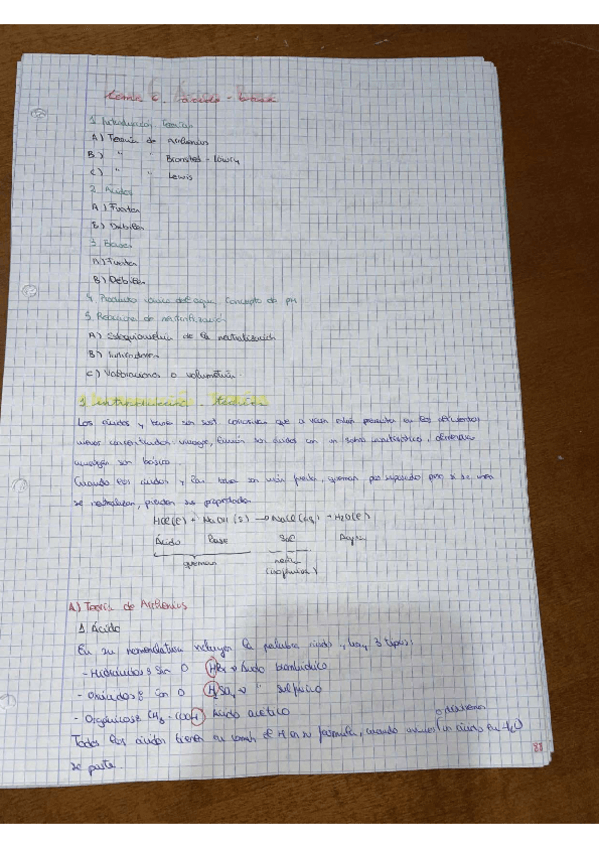 Tema 6. Ácido - base
1. Introducción. Teorías
A) Teoría de Arrhenius
B) " " Bronsted - Lowry
C) " " Lewis
2. Ácidos
A) Fuertes
B) Débiles
3. Bases
A) Fuertes
B) Débiles
4. Producto iónico del agua. Concepto de pH
5. Reacciones de neutralización
A) Estequiometría de la neutralización
B) Indicadores
C) Valoraciones o volumetrías.
1. Introducción. Teorías
Los ácidos y bases son sust. que a veces están presentes en los alimentos
menos concentrados. vinagre, limón son ácidos con un sabor
son básicos.
Cuando los ácidos y las bases son más fuertes, queman por separado pero si se unen
se neutralizan, pierden sus propiedades
HCl(l) + NaOH (s) → NaCl(aq) + H2O(l)
Ácido Base Sal Agua
queman
A) Teoría de Arrhenius
1. Ácido
En su nomenclatura incluyen la palabra ácido, hay 3 tipos:
- Hidrácidos: Sin O HBr → Ácido bromhídrico
- Oxácidos: con O H2SO4 → " sulfúrico
- Orgánicos: CH3 - COOH Ácido acético
Todos los ácidos tienen en común el H en su fórmula, cuando un ácido en H2O
se parte
88